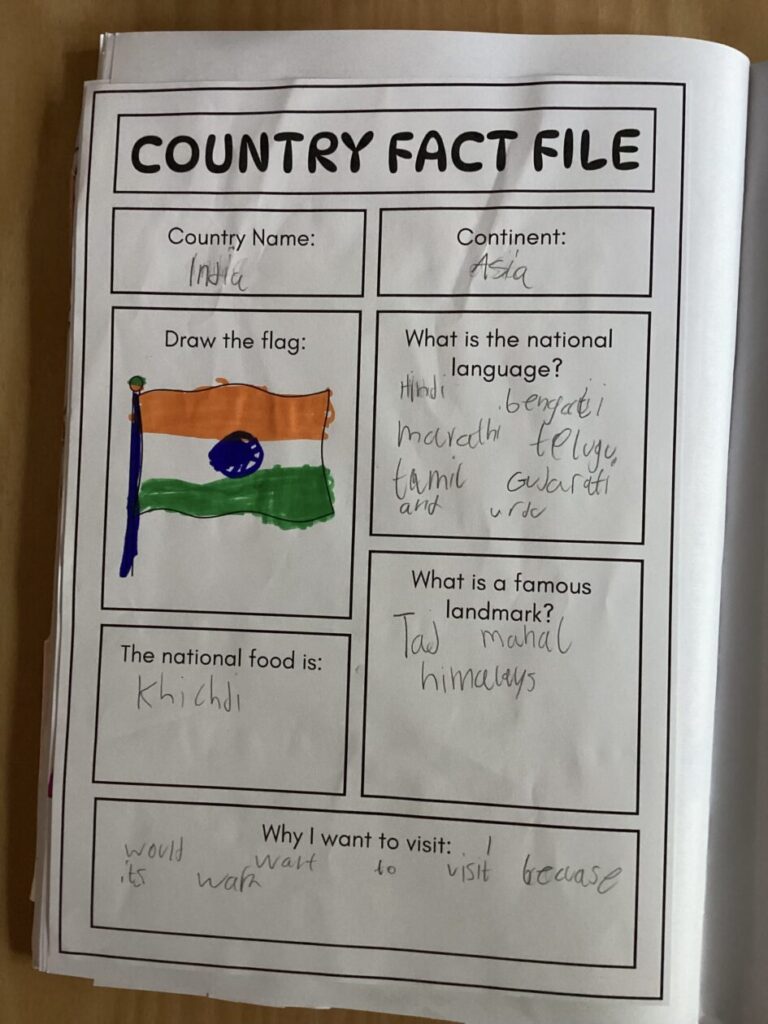 COUNTRY FACT FILE
Country Name:
India
Continent:
Asia
Draw the flag:
What is the national
language?
Hindi bengali
marathi telugu
tamil Gujarati
and urdu
The national food is:
Khichdi
What is a famous
landmark?
Taj mahal
himalays
Why I want to visit: I
would want to visit because
its warm